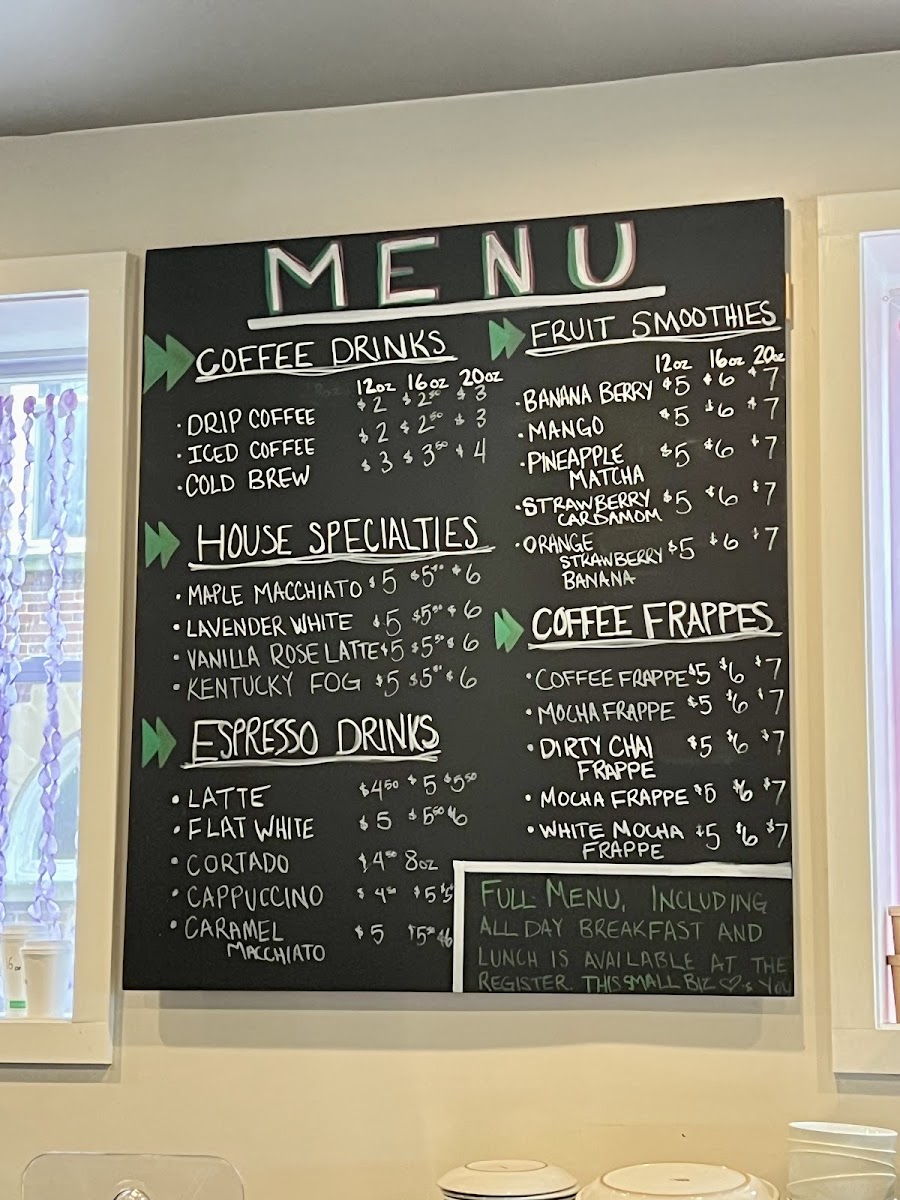 MENU
COFFEE DRINKS
12oz 16oz 20oz
• DRIP COFFEE $2 $2.50 $3
• ICED COFFEE $2 $2.50 $3
• COLD BREW $3 $3.50 $4
HOUSE SPECIALTIES
• MAPLE MACCHIATO $5 $5.50 $6
• LAVENDER WHITE $5 $5.50 $6
• VANILLA ROSE LATTE $5 $5.50 $6
• KENTUCKY FOG $5 $5.50 $6
ESPRESSO DRINKS
• LATTE $4.50 $5 $5.50
• FLAT WHITE $5 $5.50 $6
• CORTADO $4.50 8oz
• CAPPUCCINO $4.50 $5
• CARAMEL $5 $5.50 $6
MACCHIATO
FRUIT SMOOTHIES
12oz 16oz 20oz
• BANANA BERRY $5 $6 $7
• MANGO $5 $6 $7
• PINEAPPLE $5 $6 $7
MATCHA
• STRAWBERRY $5 $6 $7
CARDAMOM
• ORANGE
STRAWBERRY $5 $6 $7
BANANA
COFFEE FRAPPES
• COFFEE FRAPPE $5 $6 $7
• MOCHA FRAPPE $5 $6 $7
• DIRTY CHAI $5 $6 $7
FRAPPE
• MOCHA FRAPPE $5 $6 $7
• WHITE MOCHA $5 $6 $7
FRAPPE
FULL MENU, INCLUDING
ALL DAY BREAKFAST AND
LUNCH IS AVAILABLE AT THE
REGISTER. THIS SMALL BIZ ♡'s YOU